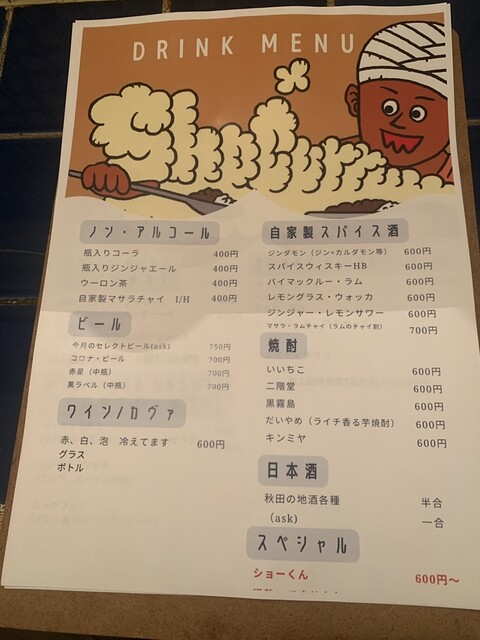 DRINK MENU
ShoCurry
ノン・アルコール
瓶入りコーラ 400円
瓶入りジンジャエール 400円
ウーロン茶 400円
自家製マサラチャイ I/H 400円
ビール
今月のセレクトビール(ask) 750円
コロナ・ビール 700円
赤星（中瓶） 700円
黒ラベル（中瓶） 700円
ワイン/カヴァ
赤、白、泡 冷えてます 600円
グラス
ボトル
自家製スパイス酒
ジンダモン（ジン×カルダモン等） 600円
スパイスウィスキーHB 600円
バイマックルー・ラム 600円
レモングラス・ウォッカ 600円
ジンジャー・レモンサワー 600円
マサラ・ラムチャイ（ラムのチャイ割） 700円
焼酎
いいちこ 600円
二階堂 600円
黒霧島 600円
だいやめ（ライチ香る芋焼酎） 600円
キンミヤ 600円
日本酒
秋田の地酒各種 半合
（ask） 一合
スペシャル
ショーくん 600円～